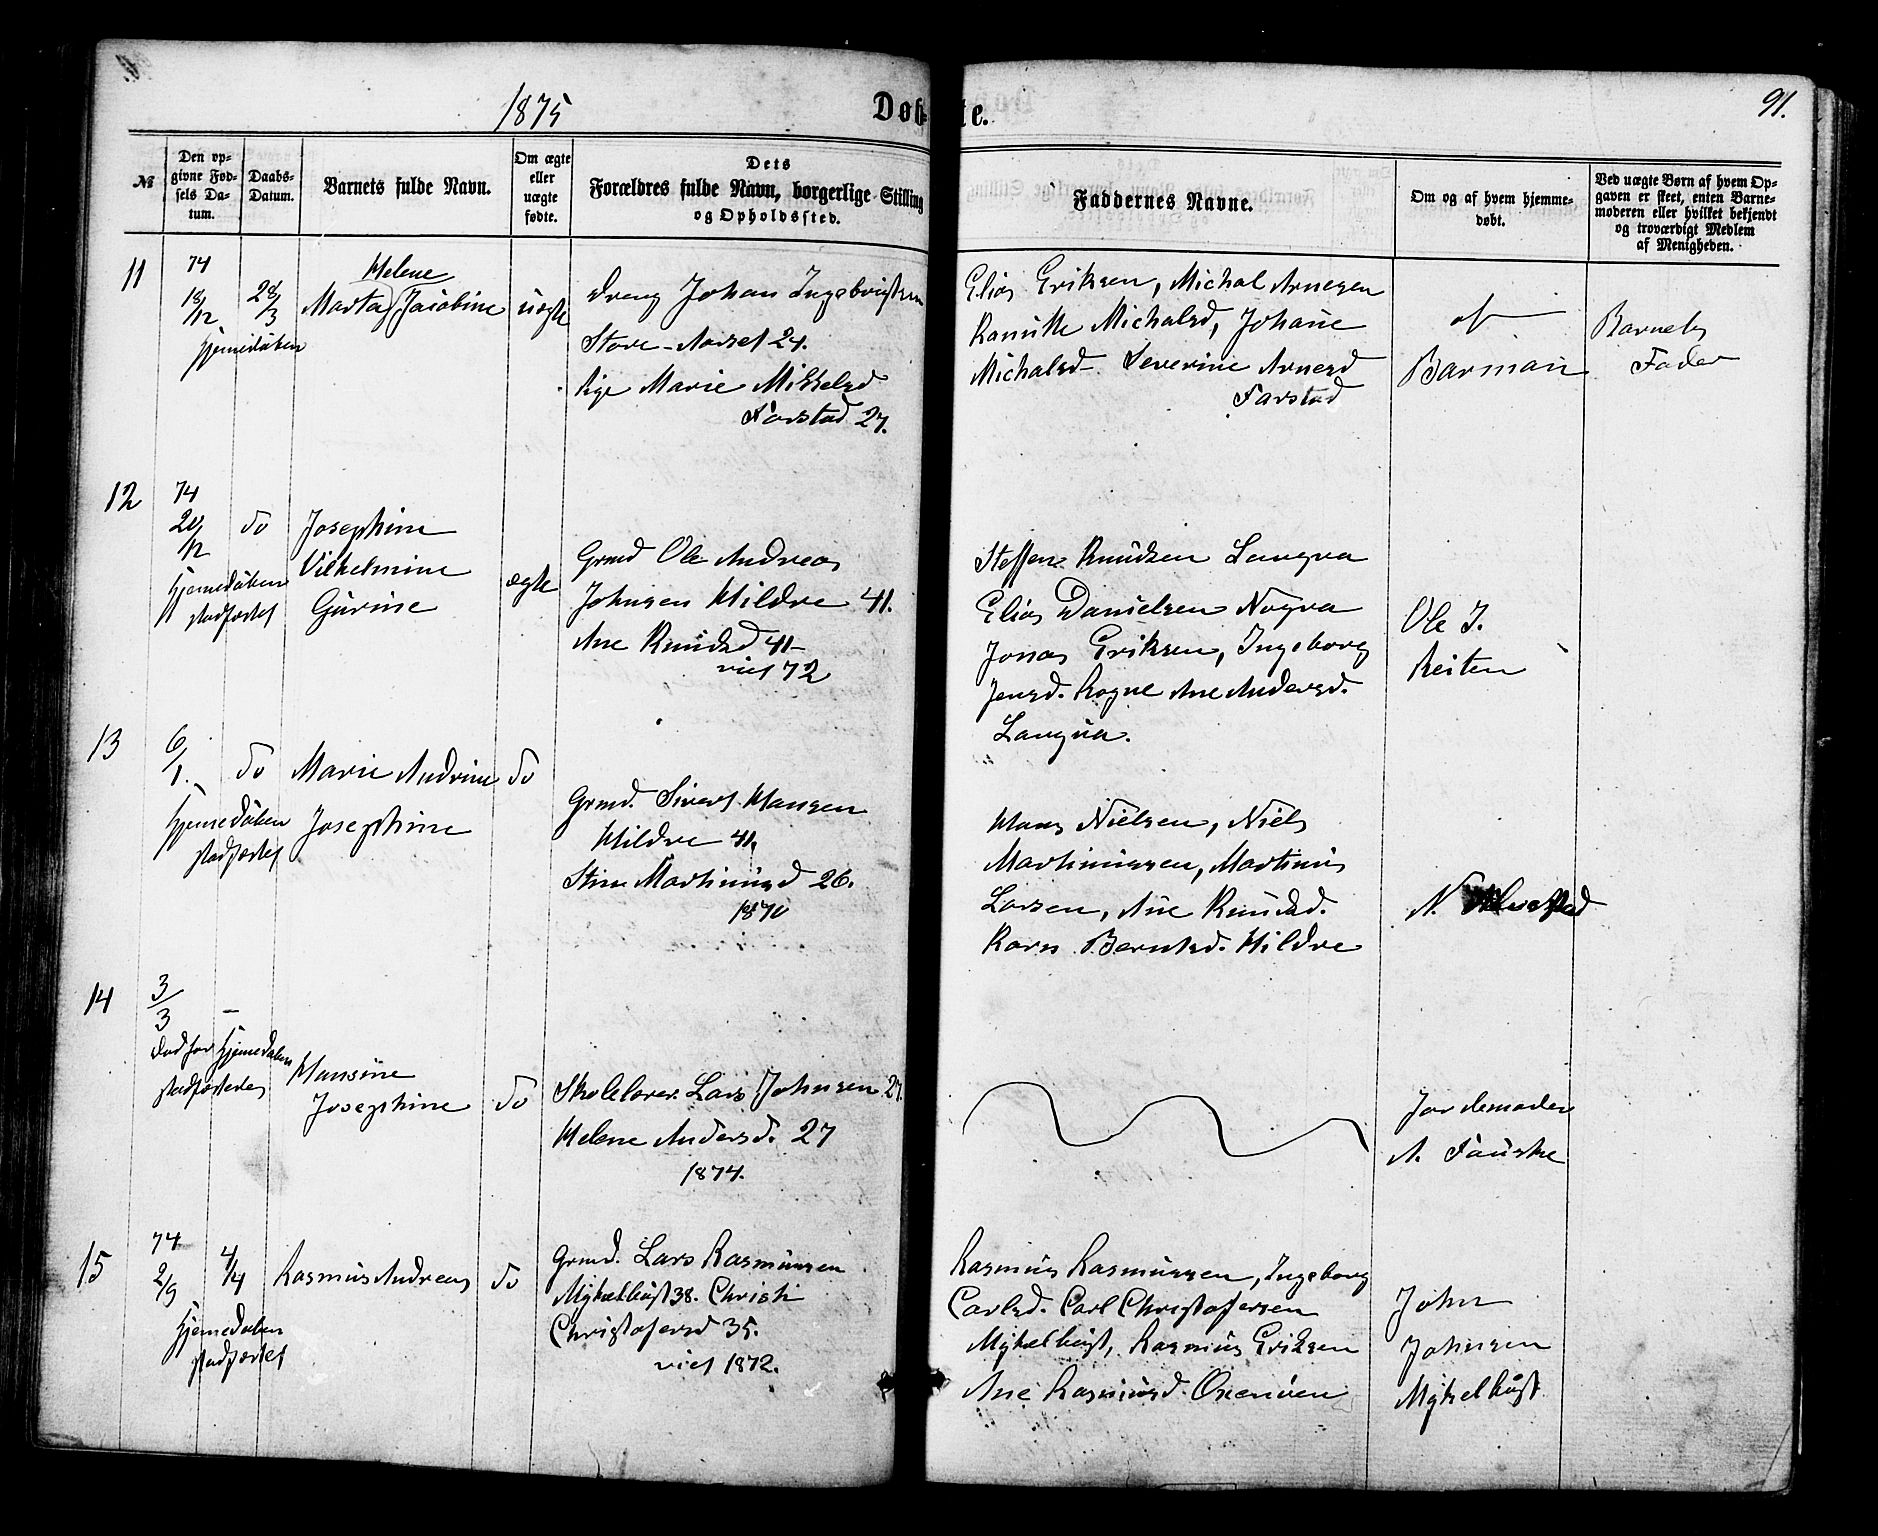 1875
Døbte.
91.
№
Den opgivne Fødsels Datum.
Daabs-Datum.
Barnets fulde Navn.
Om ægte eller uægte fødte.
Dets Forældres fulde Navn, borgerlige Stilling og Opholdssted.
Faddernes Navne.
Om og af hvem hjemmedøbt.
Ved uægte Børn af hvem Opgaven er skeet, enten Barnemoderen eller hvilket bekjendt og troværdigt Medlem af Menigheden.
11
74
18/12
28/3
hjemedøben
Helene
Marta Jacobine
uægte
Dreng Johan Ingebrigtsen
Store-Aarset 24.
Pige Marie Mikkelsd
Farstad 27.
Elias Eriksen, Michal Arnesen
Michalsd, Johane
Michalsd Severine Arnesd
Farstad
af
Barman
Barnets
Fader
12
74
20/12
do
hjemedøben
stadfæstet
Josephine
Vilhelmine
Gurine
ægte
Grmd Ole Andreas
Johnsen Hildre 41.
Ane Knudsd 41
viet 72
Steffen Knudsen Longva
Elias Danielsen Nogva
Jonas Eriksen, Ingeborg
Jensd. Rogne Ane Andersd.
Longva.
Ole J.
Reiten
13
6/1.
do
hjemedøben
stadfæstet
Marie Andrine
Josephine
do
Grmd. Sivert Hansen
Hildre 41,
Stine Martinusd 26.
1870
Hans Nielsen, Niels
Martinussen, Martinus
Larsen, Ane Knudsd.
Karn Berntsd. Hildre
N.
14
3/3
-
død før hjemedøben
stadfæstedes
Hansine
Josephine
do
Skolelærer Lars Johnsen 27.
Helene Andersd. 27
1874.
Jordemoder
A. Fauske
15
74
2/9
4/4
hjemedøben
stadfæstet
Rasmus Andreas
do
Grmd. Lars Rasmussen
Myklebust 38. Christi
Christofersd 35.
viet 1872.
Rasmus Rasmussen, Ingeborg
Carlsd. Carl Christofersen
Myklebust, Rasmus Eriksen
Ane Rasmusd. Oxenöen
John
Johnsen
Myklebust